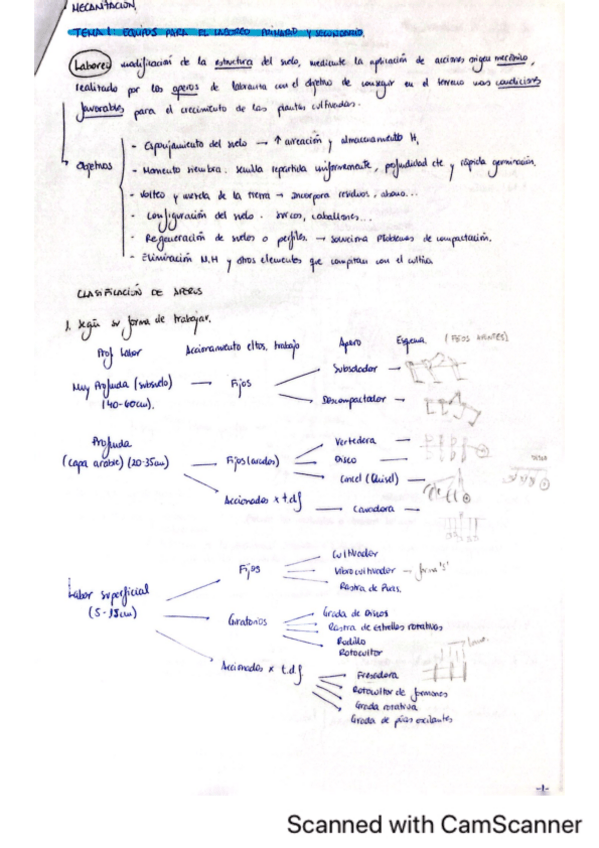 MECANIZACIÓN.
TEMA 1: EQUIPOS PARA EL LABOREO PRIMARIO Y SECUNDARIO.
Labores modificación de la estructura del suelo, mediante la aplicación de acciones origen mecánico,
realizado por los aperos de labranza con el objetivo de conseguir en el terreno unas condiciones
favorables para el crecimiento de las plantas cultivadas.
Objetivos
- Esponjamiento del suelo → ↑ aireación y almacenamiento H,
- Momento siembra: semilla repartida uniformemente, profundidad cte y rápida germinación.
- Volteo y mezcla de la tierra → incorpora residuos, abono...
- Configuración del suelo. surcos, caballones...
- Regeneración de suelos o perfiles. → soluciona problemas de compactación.
- Eliminación M.H y otros elementos que compitan con el cultivo
CLASIFICACIÓN DE APEROS
1. Según su forma de trabajar.
Prof labor Accionamiento eltos. trabajo Apero Esquema
Muy Profunda (subsuelo) → Fijos
(40-60cm).
Subsolador →
Descompactador →
Profunda
(capa arable) (20-35cm) → Fijos (arados)
Vertedera
Disco
Cincel (Chisel)
Accionados x t.d.f → Cavadora
Labor superficial
(5-15cm)
Fijos
Cultivador
Vibrocultivador → forma 's'
Rastra de Púas.
Giratorios
Grada de Discos
Rastra de estrellas rotativas
Rodillo
Rotocultor
Accionados x t.d.f
Fresadora
Rotocultor de formones
Grada rotativa
Grada de púas oscilantes
-1-
Scanned with CamScanner